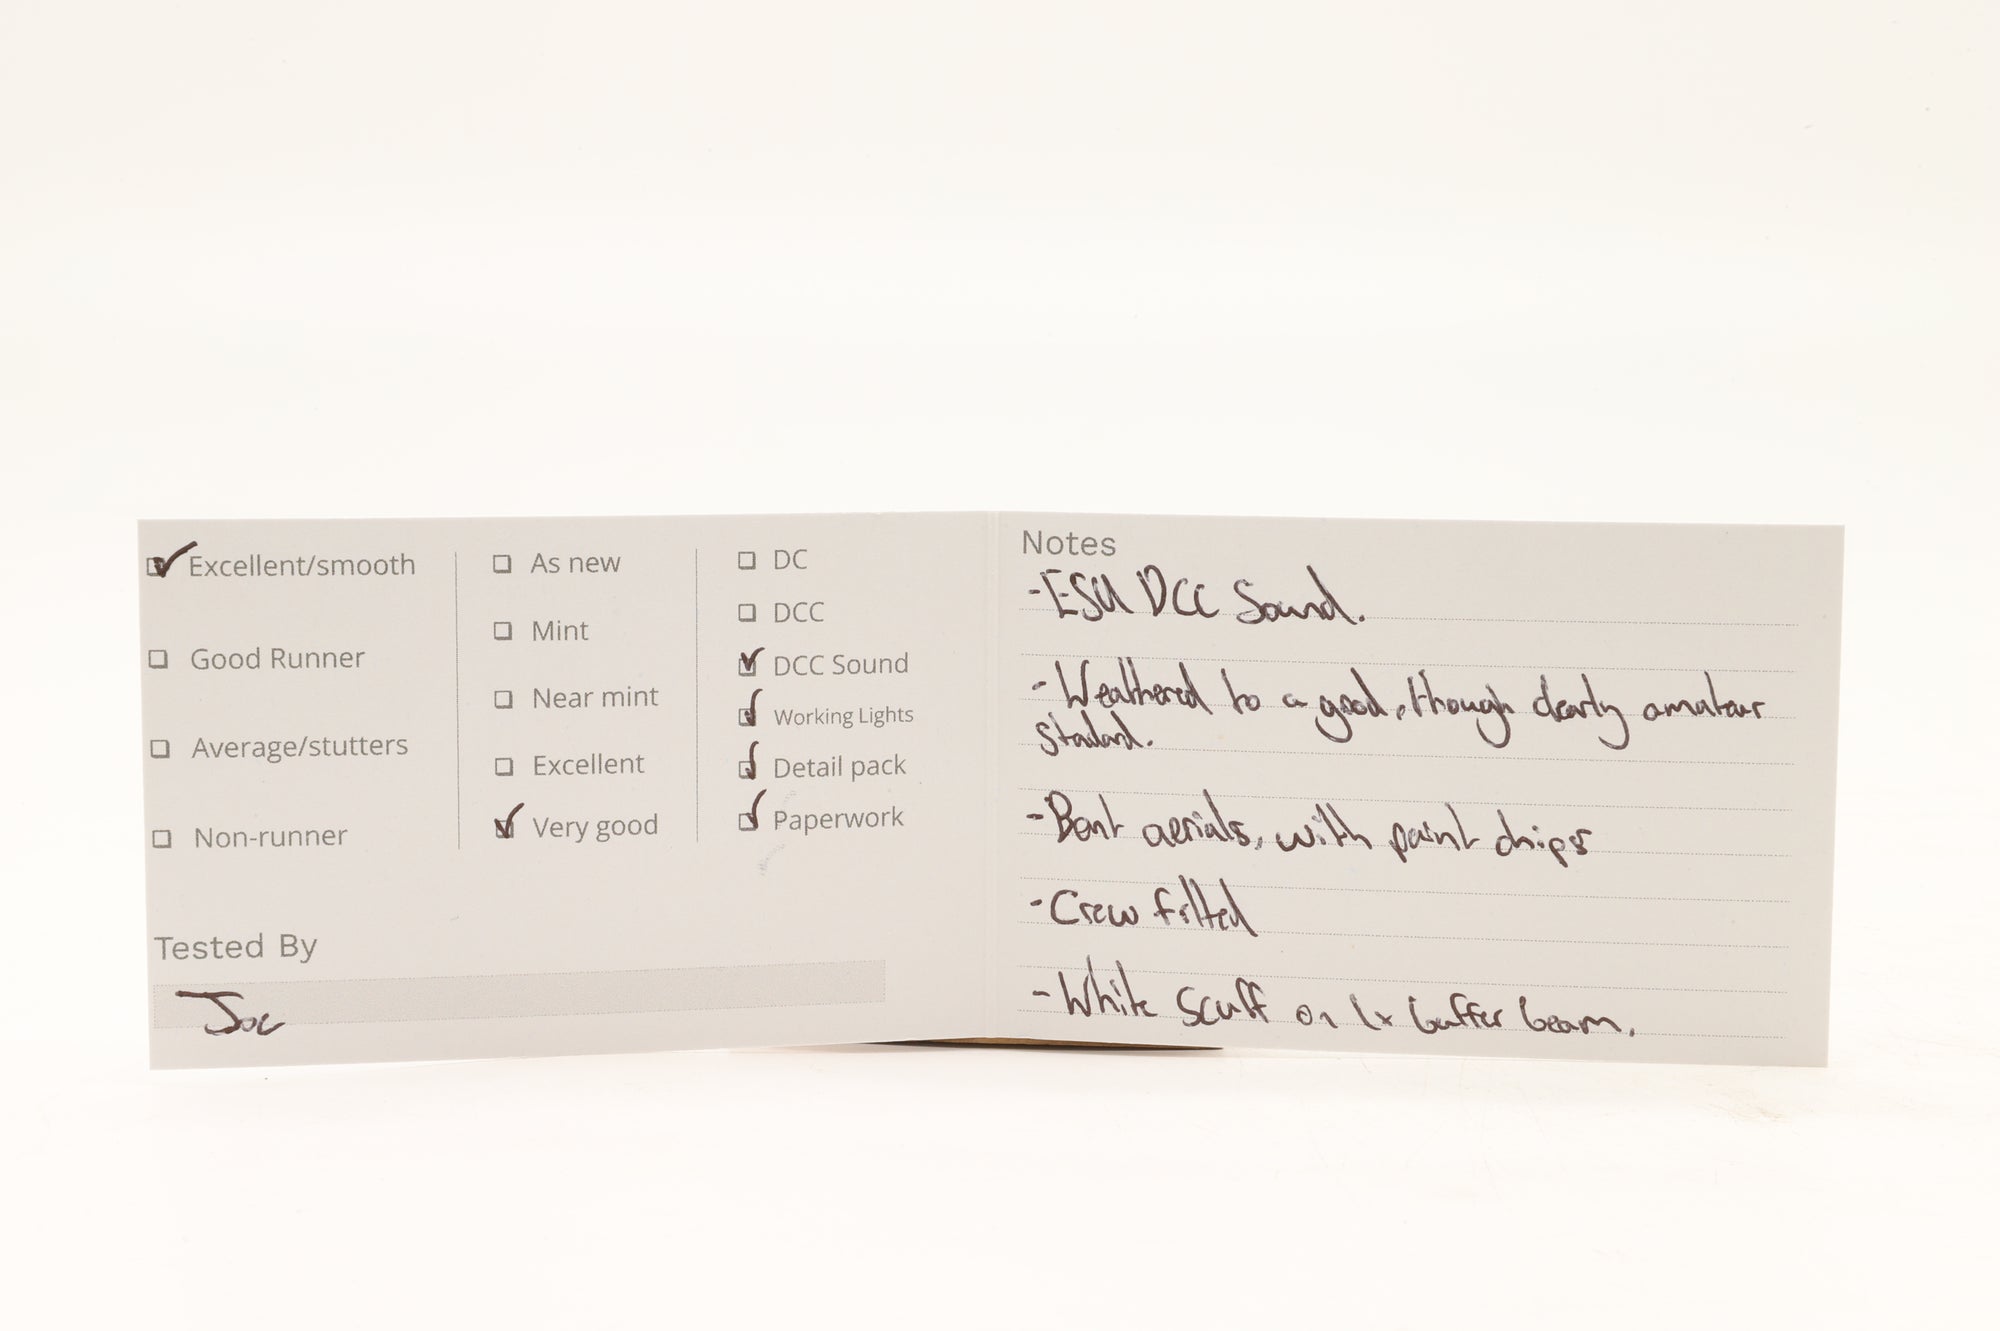 Excellent/smooth
Good Runner
Average/stutters
Non-runner
As new
Mint
Near mint
Excellent
Very good
DC
DCC
DCC Sound
Working Lights
Detail pack
Paperwork
Tested By
Joe
Notes
-ESU DCC Sound.
-Weathered to a good, though clearly amateur
standard.
-Bent aerials, with paint chips
-Crew fitted
-White scuff on 1x buffer beam.